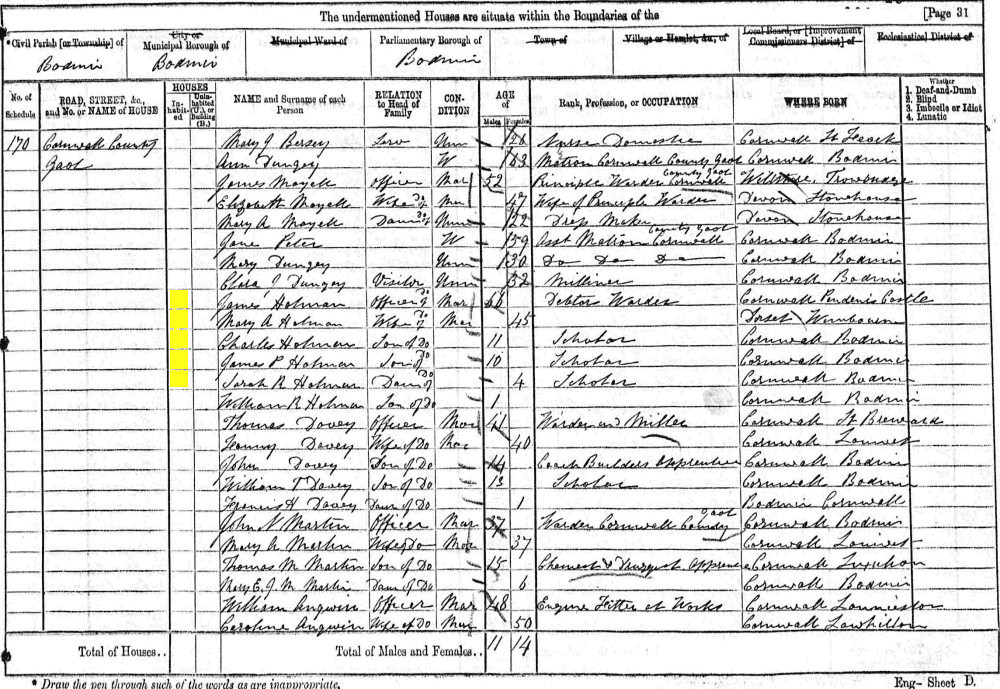 The undermentioned Houses are situate within the Boundaries of the [Page 31
*Civil Parish [or Township] of City or Municipal Borough of Municipal Ward of Parliamentary Borough of Town of Village or Hamlet, &c., of Local Board, or [Improvement Commissioners District] of Ecclesiastical District of
Bodmin Bodmin Bodmin
No. of Schedule ROAD, STREET, &c., and No. or NAME of HOUSE HOUSES Inhabited Uninhabited (U.), or Building (B.) NAME and Surname of each Person RELATION to Head of Family CONDITION AGE of Males Females Rank, Profession, or OCCUPATION WHERE BORN Whether 1. Deaf-and-Dumb 2. Blind 3. Imbecile or Idiot 4. Lunatic
170 Cornwall County Mary J Bersey Serv Unm 26 Nurse Domestic Cornwall St
Gaol Ann Dungey W 63 Matron Cornwall County Gaol Cornwall Bodmin
James Mayell officer Mar 52 Principle Warder Cornwall County Gaol Wiltshire, Trowbridge
Elizabeth Mayell Wife of Do Mar 47 Wife of Principle Warder Devon Stonehouse
Mary A Mayell Daur of Do Unm 22 Dress Maker Devon Stonehouse
Jane Peter W 59 Asst Matron Cornwall County Gaol Cornwall Bodmin
Mary Dungey Unm 30 Do Do Do Cornwall Bodmin
Clara J Dungey Visitor Unm 32 Milliner Cornwall Bodmin
James Holman Officer Mar Debtor Warder Cornwall Pendenis Castle
Mary A Holman Wife of Do Mar 45 Dorset Wimbourne
Charles Holman Son of Do 11 Scholar Cornwall Bodmin
James P Holman Son of Do 10 Scholar Cornwall Bodmin
Sarah R Holman Daur of Do 4 Scholar Cornwall Bodmin
William R Holman Son of Do 1 Cornwall Bodmin
Thomas Davey Officer Mar 41 Warder and Miller Cornwall St Breward
Fanny Davey Wife of Do Mar 40 Cornwall Lanivet
John Davey Son of Do 14 Coach Builders Apprentice Cornwall Bodmin
William T Davey Son of Do 13 Scholar Cornwall Bodmin
Francis H Davey Daur of Do 1 Bodmin Cornwall
John N Martin Officer Mar 37 Warder Cornwall County Gaol Cornwall Bodmin
Mary A Martin Wife of Do Mar 37 Cornwall Lanivet
Thomas M Martin Son of Do 15 Chemist & Druggist Apprentice Cornwall Luxulian
Mary E. J. M Martin Daur of Do 6 Cornwall Bodmin
William Angwin Officer Mar 48 Engine Fitter at Works Cornwall
Caroline Angwin Wife of Do Mar 50 Cornwall Lawhitton
Total of Houses.. Total of Males and Females.. 11 14
* Draw the pen through such of the words as are inappropriate. Eng- Sheet D.